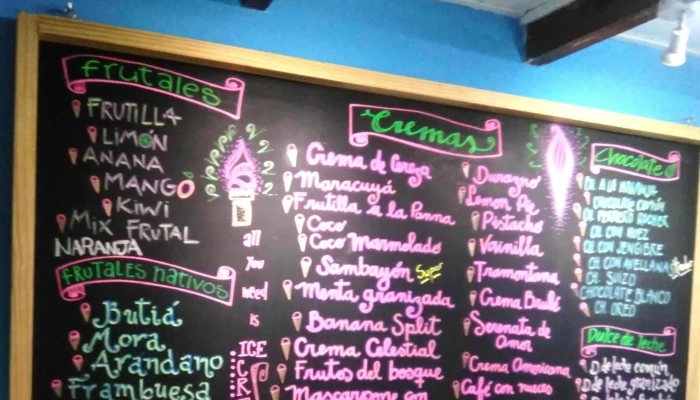 frutales
FRUTILLA
LIMÓN
ANANA
MANGO
KIWI
MIX FRUTAL
NARANJA
FRUTALES NATIVOS
Butiá
Mora
Arandano
Frambuesa
all
You
need
is
ICE
CR
Cremas
Crema de Cereza
Maracuyá
Frutilla a la Panna
Coco
Coco Marmolado
Sambayón Super
Menta granizada
Banana Split
Crema Celestial
Frutos del bosque
Mascarpone con
Durazno
Lemon Pie
Pistacho
Vainilla
Tramontana
Crema Brulé
Serenata de
Amor
Crema Americana
Café con nueces
Chocolate
CH. A LA NARANJA
CHOCOLATE COMÚN
CH. FERRERO ROCHER
CH. CON NUEZ
CH. CON JENGIBRE
CH. CON AVELLANAS
CH. SUIZO
CHOCOLATE BLANCO
CH. OREO
Dulce de leche
D de leche común
D de leche granizado